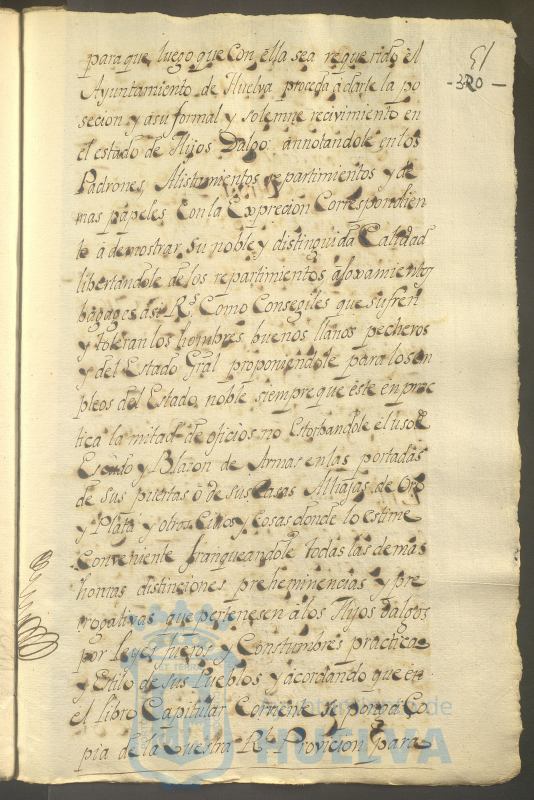 51
-320-
para que luego que con ella sea requerido el
Ayuntamiento de Huelva proceda à darle la po
secion y asu formal y solemne recivimiento en
el estado de Hijos Dalgo: annotandole en los
Padrones, Alistamientos repartimientos y de
mas papeles con la Exprecion Correspondien
te à demostrar su noble y distinguida Calidad
libertandole de los repartimientos alojamientos
bagages asi Rs. Como Consegiles que sufren
y toleran los hombres buenos llanos pecheros
y del Estado Gral proponiendole para los em
pleos del Estado noble siempre que este en prac
tica la mitad de oficios no Estorbandole el uso de
Escudo y Blazon de Armas en las portadas
de sus puertas ò de sus Casas Alhajas de Oro
y Plata y otros Citios y Cosas donde lo estime
Conveniente franqueandole todas las demas
honras distinciones preheminencias y pre
rogativas que pertenesen à los Hijos dalgos
por Leyes fueros y Constumbres practicas
y Estilo de sus Pueblos y acordando que en
el Libro Capitular Corriente se ponga Co
pia de la Vuestra Rl. Provicion para
HUELVA